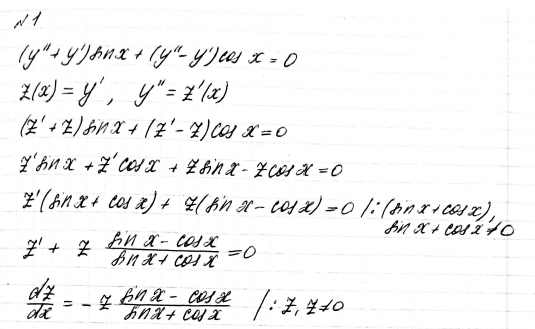 №1
(y''+y')sinx+(y''-y')cos x=0
z(x)=y', y''=z'(x)
(z'+z)sinx+(z'-z)cosx=0
z'sinx+z'cosx+zsinx-zcosx=0
z'(sinx+cosx)+z(sinx-cosx)=0 /:(sinx+cosx),
sinx+cosx≠0
z'+z \frac{sin x-cosx}{sinx+cosx}=0
\frac{dz}{dx}=-z \frac{sinx-cosx}{sinx+cosx} /:z, z≠0